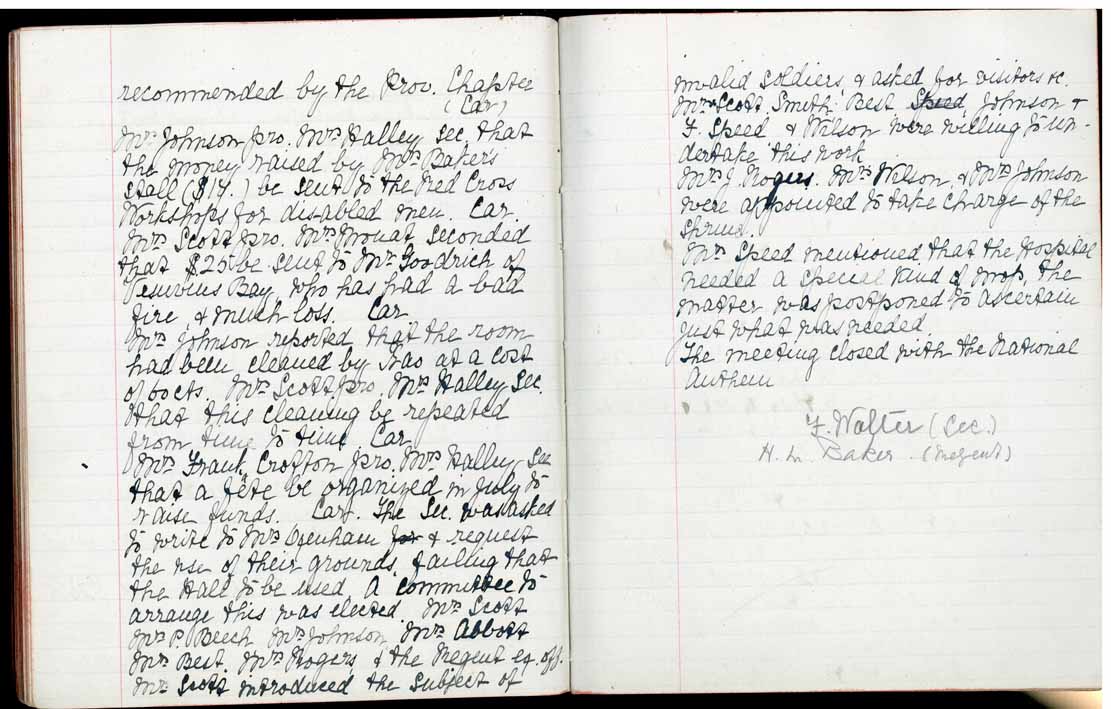 recommended by the Prov. Chapter
(Car)
Mrs Johnson pro. Mrs Halley sec. that
the money raised by Mrs Baker's
stall ($17.) be sent to the Red Cross
Workshops for disabled men. Car.
Mrs Scott pro. Mrs Mouat seconded
that $25 be sent to Mr Goodrich of
Vesuvius Bay who has had a bad
fire, & much loss. Car
Mrs Johnson reported that the room
had been cleaned by at a cost
of 60cts. Mrs Scott pro. Mrs Halley sec.
that this cleaning be repeated
from time to time. Car
Mrs Frank Crofton pro. Mrs Halley sec
that a fête be organized in July to
raise funds. Car. The Sec. was asked
to write to Mrs Oxenham for & request
the use of their grounds, failing that
the Hall to be used. A committee to
arrange this was elected. Mrs Scott
Mrs P. Beech Mrs Johnson Mrs Abbott
Mrs Best. Mrs Rogers & the Regent ex. off.
Mrs Scott introduced the subject of
invalid soldiers, & asked for visitors &c.
Mrs Scott Smith Best Speed, Johnson &
F. Speed & Wilson were willing to un-
dertake this work
Mrs J. Rogers. Mrs Wilson, & Mrs Johnson
were appointed to take charge of the
Shrine.
Mrs Speed mentioned that the Hospital
needed a special kind of mop, the
matter was postponed to ascertain
just what was needed.
The meeting closed with the National
Anthem
F. Walter (Sec.)
H. M. Baker. (Regent)